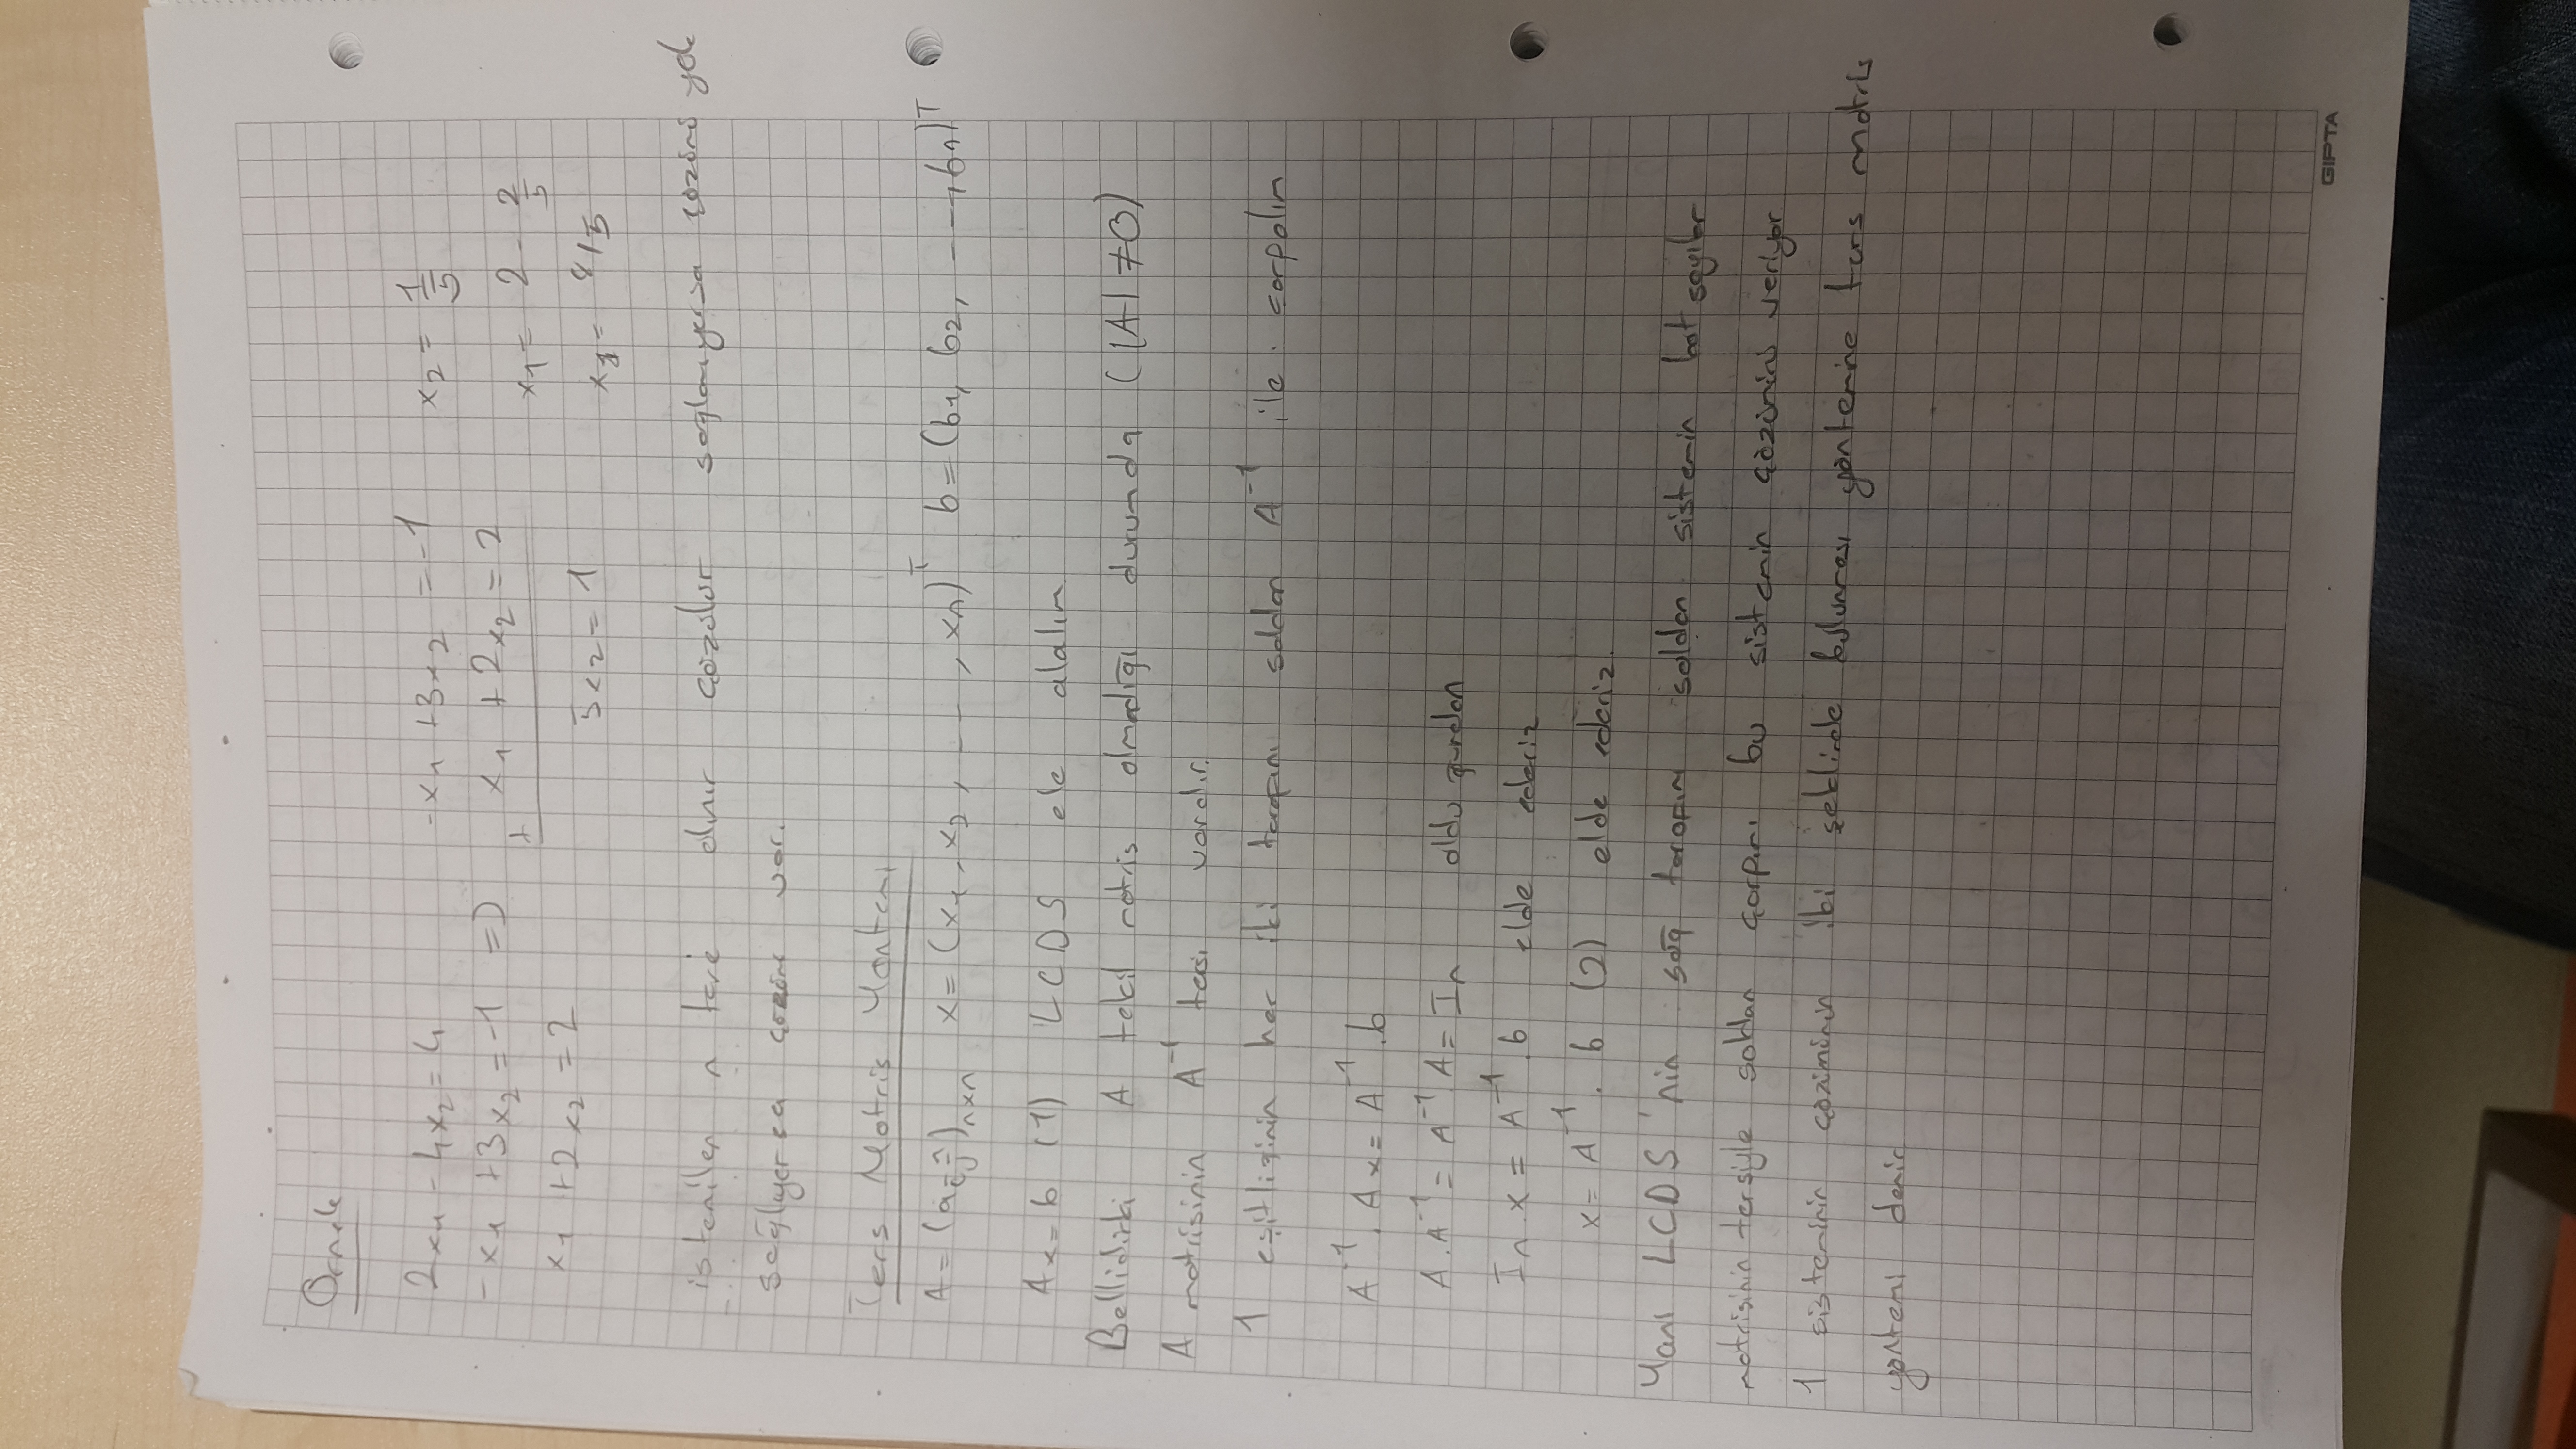 Örnek
2x₁ - 4x₂ = 4    -x₁ + 3x₂ = -1    x₂ = 1/5
-x₁ + 3x₂ = -1 => + x₁ + 2x₂ = 2    x₁ = 2 - 2/5
x₁ + 2x₂ = 2    5x₂ = 1    x₁ = 8/5
istenilen n tane alınır çözülür sağlamıyorsa çözümü yok
sağlıyorsa çözümü var.
Ters Matris Yöntemi
A = (aij)nxn x = (x₁, x₂, ---, xn)ᵀ b = (b₁, b₂, ---, bn)ᵀ
Ax = b (1) LCDS ele alalım
Bellidirki A tekil matris olmadığı durumda (|A| ≠ 0)
A matrisinin A⁻¹ tersi vardır.
1 eşitliğinin her iki tarafını soldan A⁻¹ ile çarpalım
A⁻¹. Ax = A⁻¹.b
A.A⁻¹ = A⁻¹.A = In olduğundan
In.x = A⁻¹.b elde ederiz
x = A⁻¹. b (2) elde ederiz.
Yani LCDS'nin sağ tarafını soldan sistemin kat sayılar
matrisinin tersiyle soldan çarpımı bu sistemin çözümünü veriyor
1 sisteminin çözümünün iki şeklinde bulunması yöntemine ters matris
yöntemi denir
GIPTA